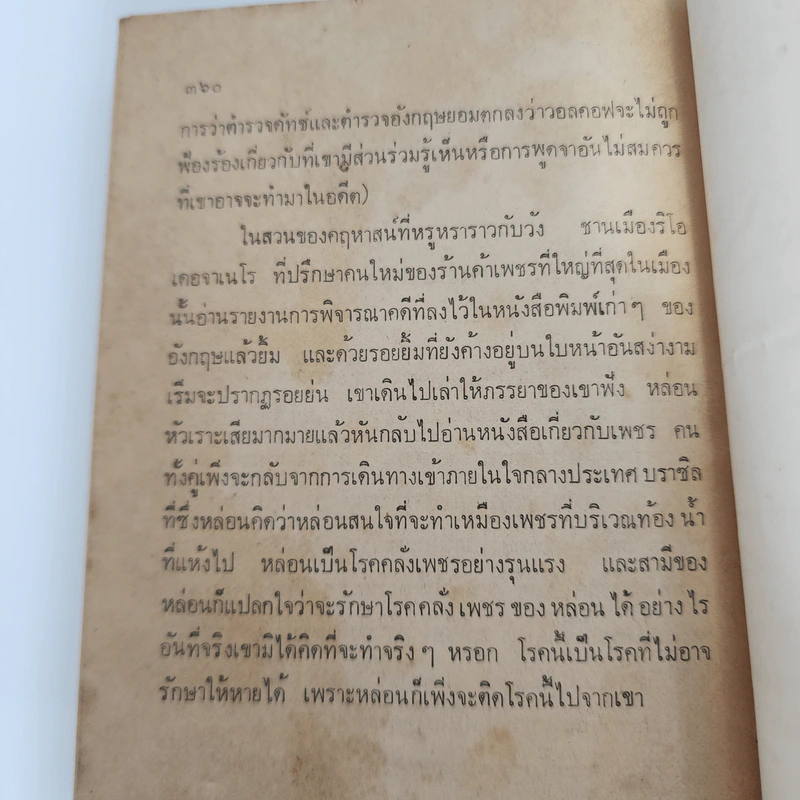 ๓๖๐
การว่าตำรวจดัทช์และตำรวจอังกฤษยอมตกลงว่าวอลคอฟจะไม่ถูก
ฟ้องร้องเกี่ยวกับที่เขามีส่วนร่วมรู้เห็นหรือการพูดจาอันไม่สมควร
ที่เขาอาจจะทำมาในอดีต)
ในสวนของคฤหาสน์ที่หรูหราราวกับวัง ชานเมืองริโอ
เดอจาเนโร ที่ปรึกษาคนใหม่ของร้านค้าเพชรที่ใหญ่ที่สุดในเมือง
นั้นอ่านรายงานการพิจารณาคดีที่ลงไว้ในหนังสือพิมพ์เก่าๆ ของ
อังกฤษแล้วยิ้ม และด้วยรอยยิ้มที่ยังค้างอยู่บนใบหน้าอันสง่างาม
เริ่มจะปรากฏรอยย่น เขาเดินไปเล่าให้ภรรยาของเขาฟัง หล่อน
หัวเราะเสียมากมายแล้วหันกลับไปอ่านหนังสือเกี่ยวกับเพชร คน
ทั้งคู่เพิ่งจะกลับจากการเดินทางเข้าภายในใจกลางประเทศ บราซิล
ที่ซึ่งหล่อนคิดว่าหล่อนสนใจที่จะทำเหมืองเพชรที่บริเวณท้อง น้ำ
ที่แห้งไป หล่อนเป็นโรคคลั่งเพชรอย่างรุนแรง และสามีของ
หล่อนก็แปลกใจว่าจะรักษาโรคคลั่ง เพชร ของ หล่อน ได้ อย่าง ไร
อันที่จริงเขามิได้คิดที่จะทำจริงๆ หรอก โรคนี้เป็นโรคที่ไม่อาจ
รักษาให้หายได้ เพราะหล่อนก็เพิ่งจะติดโรคนี้ไปจากเขา